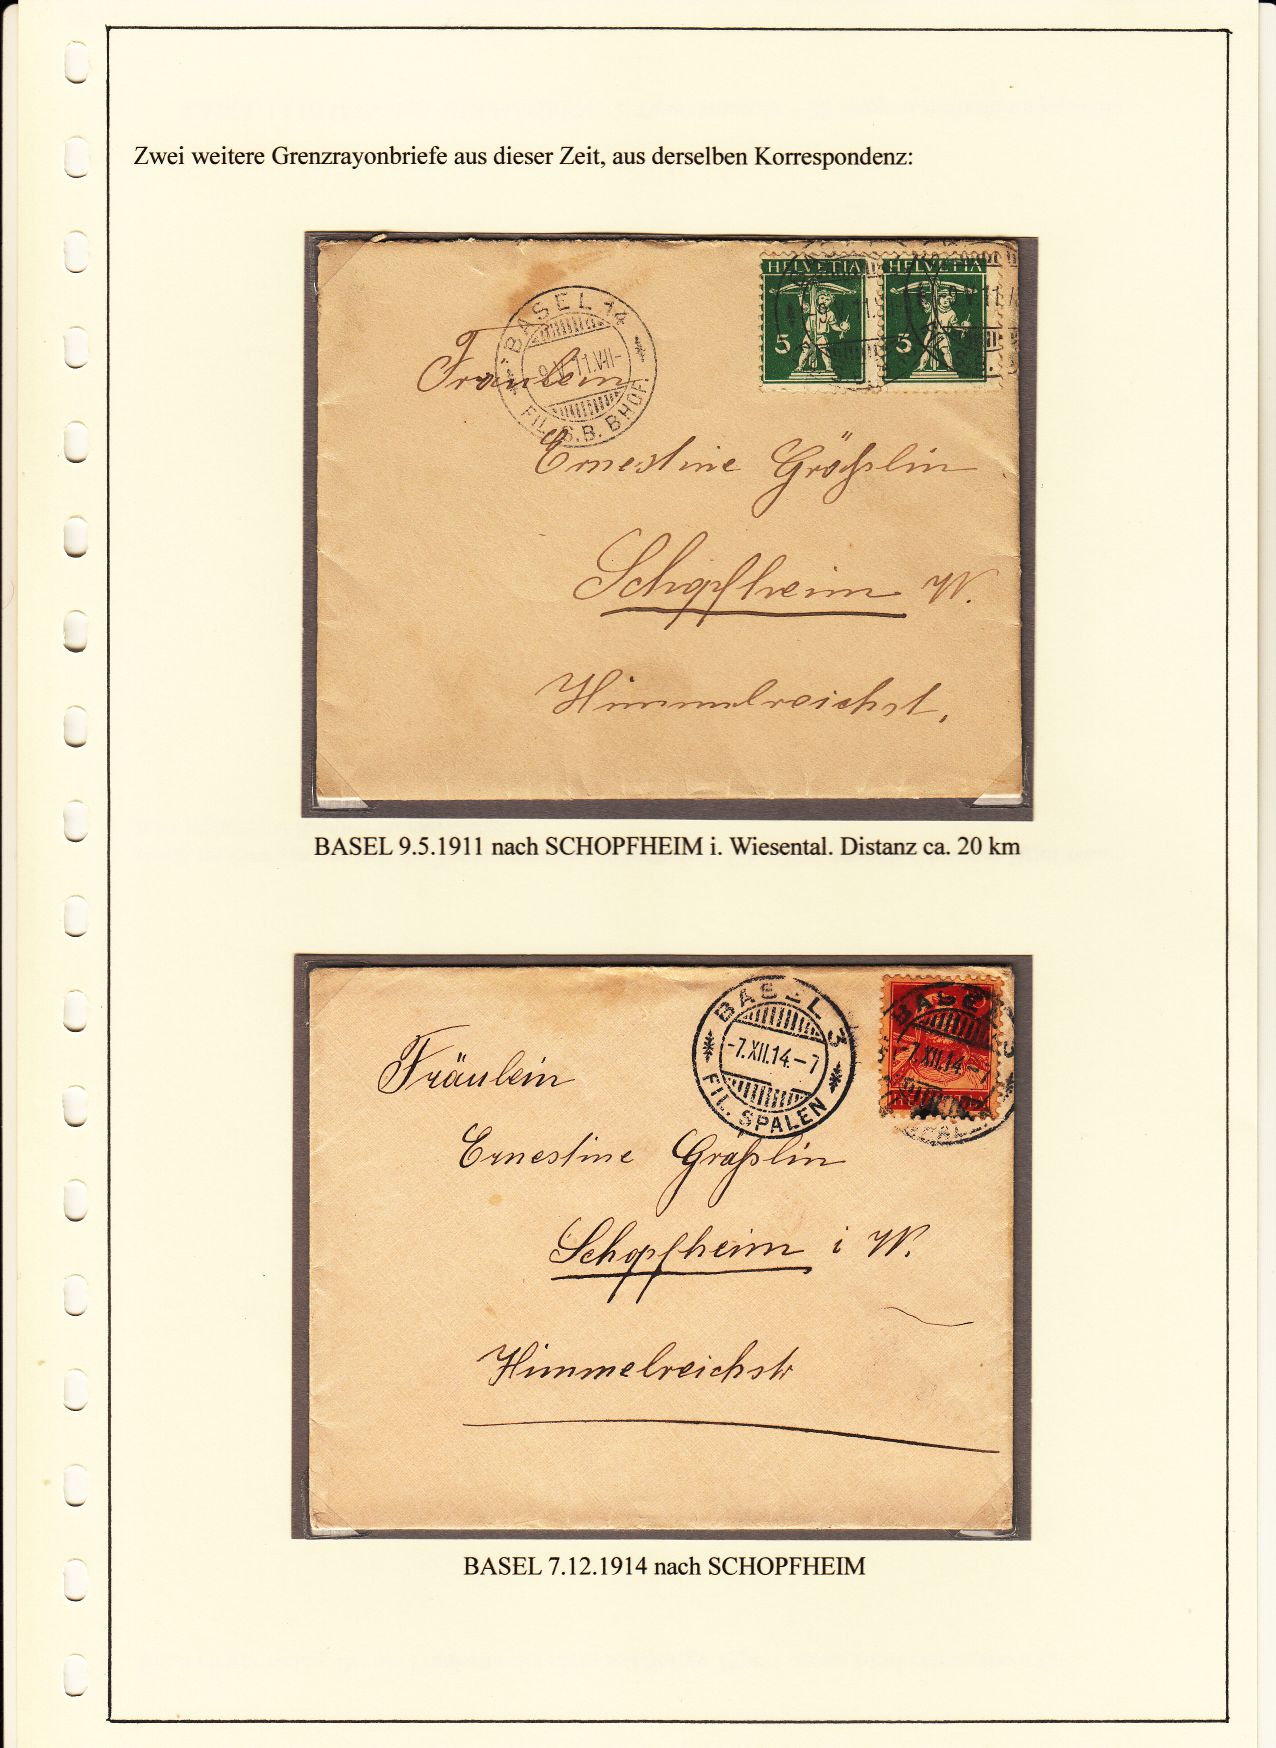 Zwei weitere Grenzrayonbriefe aus dieser Zeit, aus derselben Korrespondenz:
HELVETIA HELVETIA
5 5
BASEL 14
9.V.11.VII-
FIL. S.B. BHOF.
Fräulein
Ernestine Gräßlin
Schopfheim W.
Himmelreichst.
BASEL 9.5.1911 nach SCHOPFHEIM i. Wiesental. Distanz ca. 20 km
BASEL 3
-7.XII.14.-7
FIL. SPALEN
BASEL 3
-7.XII.14.-7
Fräulein
Ernestine Graßlin
Schopfheim i W.
Himmelreichstr
BASEL 7.12.1914 nach SCHOPFHEIM